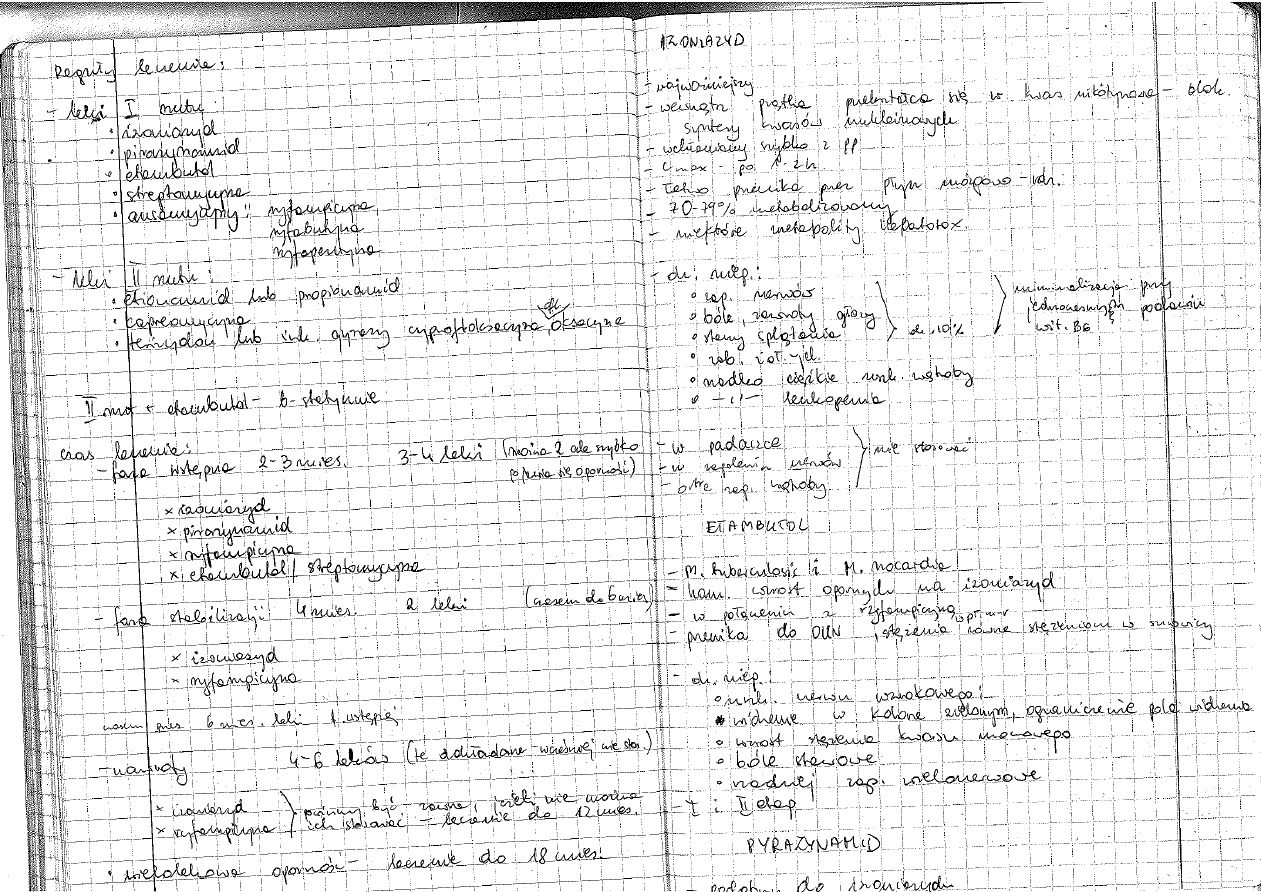 Reguły leczenia:
- leki I rzutu:
• izoniazyd
• pirazynamid
• etambutol
• streptomycyna
• ansamycyny: ryfampicyna
ryfabutyna
ryfapentyna
- leki II rzutu:
• etionamid lub propionamid
• kapreomycyna
• lub cyprofloksacyna, ofloksacyna
II rzut + etambutol - b-statycznie
czas leczenia:
- faza wstępna 2-3 mies. 3-4 leki (można 2 ale szybko
oporność)
x izoniazyd
x pirazynamid
x ryfampicyna
x etambutol / streptomycyna
- faza stabilizacji 4 mies. 2 leki (czasem do
x izoniazyd
x ryfampicyna
6 mies. leki
- nawroty 4-6 leków (te wcześniej nie stos.)
x izoniazyd
x ryfampicyna } powinny być zawsze, jeżeli nie można
ich stosować - leczenie do 12 mies.
• wielolekowa oporność - leczenie do 18 mies.
IZONIAZYD
- najważniejszy
- wewnątrz prątka przekształca się w kwas nikotynowy - blok.
syntezy kwasów nukleinowych
- wchłaniany szybko z PP
- Cmax - po 1-2h
- łatwo przenika przez płyn mózgowo-rdz.
- 70-79% metabolizowany
- niektóre metabolity hepatotox.
- dz. niep.:
• zap. nerwów
• bóle, zawroty głowy
• stany splątania
} ok. 10% } minimalizacja przy
jednoczesnym podawaniu
wit. B6
• zab. żoł.-jel.
• rzadko ciężkie uszk. wątroby
• -''- leukopenia
- w padaczce
- w zapaleniu nerwów
- ostre zap. wątroby
} nie stosować
ETAMBUTOL
- M. tuberculosis i M. nocardia!
- ham. wzrost opornych na izoniazyd
- w połączeniu z ryfampicyną
- przenika do OUN, stężenia równe stężeniom w surowicy
- dz. niep.:
• uszk. nerwu wzrokowego!
• widzenie w kolorze zielonym, ograniczenie pola widzenia
• wzrost stężenia kwasu moczowego
• bóle stawowe
• rzadziej zap. wielonerwowe
- I i II etap
PYRAZYNAMID
- podobny do izoniazydu